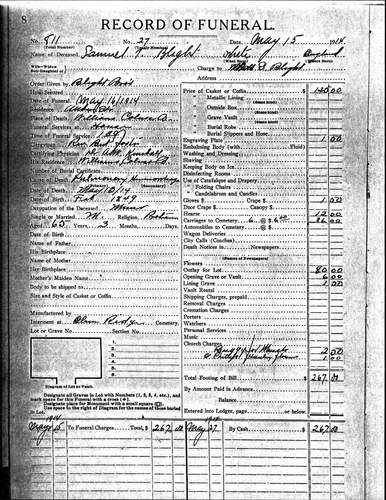 8
RECORD OF FUNERAL.
No. 811 No. 27 Date, May 15 1914
(Total Number) (Yearly Number)
Name of Deceased, Samuel Blight White England
Charge to Blight
Address
Order Given by, Blight Bros
How Secured,
Date of Funeral, May 16/1914
Residence,
Place of Death, Williams
Funeral Services at Home
Time of Funeral Service,
Clergyman, Rev
Certifying Physician,
His Residence, Williams
Number of Burial Certificate,
Cause of Death, Pulmonary Hemorrhage
Date of Death, May 10/14
Date of Birth, Feb 1849
Occupation of the Deceased, Miner
Single or Married, M. Religion,
Aged, 65 Years, 3 Months, Days.
Date of Birth,
Name of Father,
His Birthplace,
Name of Mother,
Her Birthplace,
Mother's Maiden Name
Body to be shipped to
Size and Style of Casket or Coffin,
Manufactured by
Interment at Cemetery
Lot or Grave No. Section No.
1.
2.
3.
4.
5.
6.
7.
8.
Diagram of Lot or Vault.
Designate all Graves in Lot with Numbers (1, 2, 3, 4, etc.), and
mark space for this Funeral with a cross (+).
Designate place for Monument with a small square (□).
Use space to the right of Diagram for the names of those buried
in Lot.
Price of Casket or Coffin
" Metallic Lining
" Outside Box
" Grave Vault
" Burial Robe
" Burial Slippers and Hose
Engraving Plate 1.00
Embalming Body (with Fluid)
Washing and Dressing
Shaving
Keeping Body on Ice
Disinfecting Rooms
Use of Catafalque and Drapery
" Folding Chairs
" Candelabrum and Candles
Gloves $ Crape $ 1.00
Door Crape $ Fancy $
Hearse 12.00
Carriages to Cemetery 6 @ $ 6.00 36.00
Automobiles to Cemetery @ $
Wagon Deliveries
City Calls (Coaches)
Death Notices in Newspapers
(Names of Newspapers)
Flowers
Outlay for Lot 80.00
Opening Grave or Vault 6.00
Lining Grave 1.00
Vault Rental
Shipping Charges, prepaid
Removal Charges
Cremation Charges
Porters
Watchers
Personal Services
Music
Church Charges
2.00
Total Footing of Bill 267.00
By Amount Paid in Advance
Balance
Entered into Ledger, page or below.
1914 1914
May 15 To Funeral Charges, Total, $ 267.00 May 27 By Cash $ 267.00